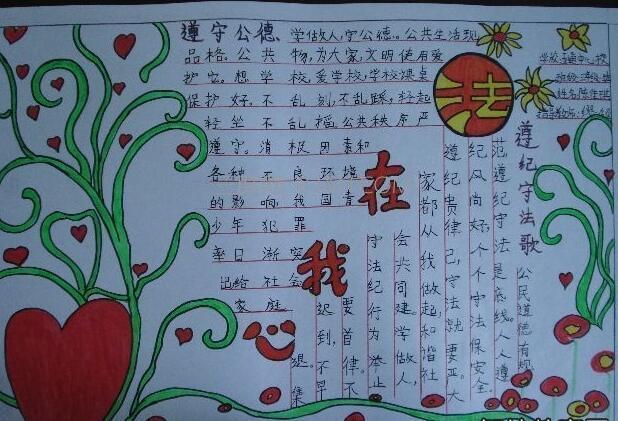 遵守公德 学做人,守公德。公共生活现
品格。公共物,为大家,文明使用爱
护它。想学校爱学校,学校课桌
保护好。不乱刻,不乱踩,轻起
轻坐不乱摇。公共秩序严
遵守。消极因素和
各种不良环境
的影响,我国青
少年犯罪
率日渐突
出给社会
家庭
法
在
我
学校:中心校
班级:
姓名:
指导教师:
遵纪守法歌
公民道德有规
范遵纪守法是底线。人人遵
纪风尚好,个不守法保安全。
遵纪贵律己,守法就要严。大
家都从我做起,和谐社
会共同建。学做人,
守法纪行为举止
要首律。不
迟到,不早
退。集